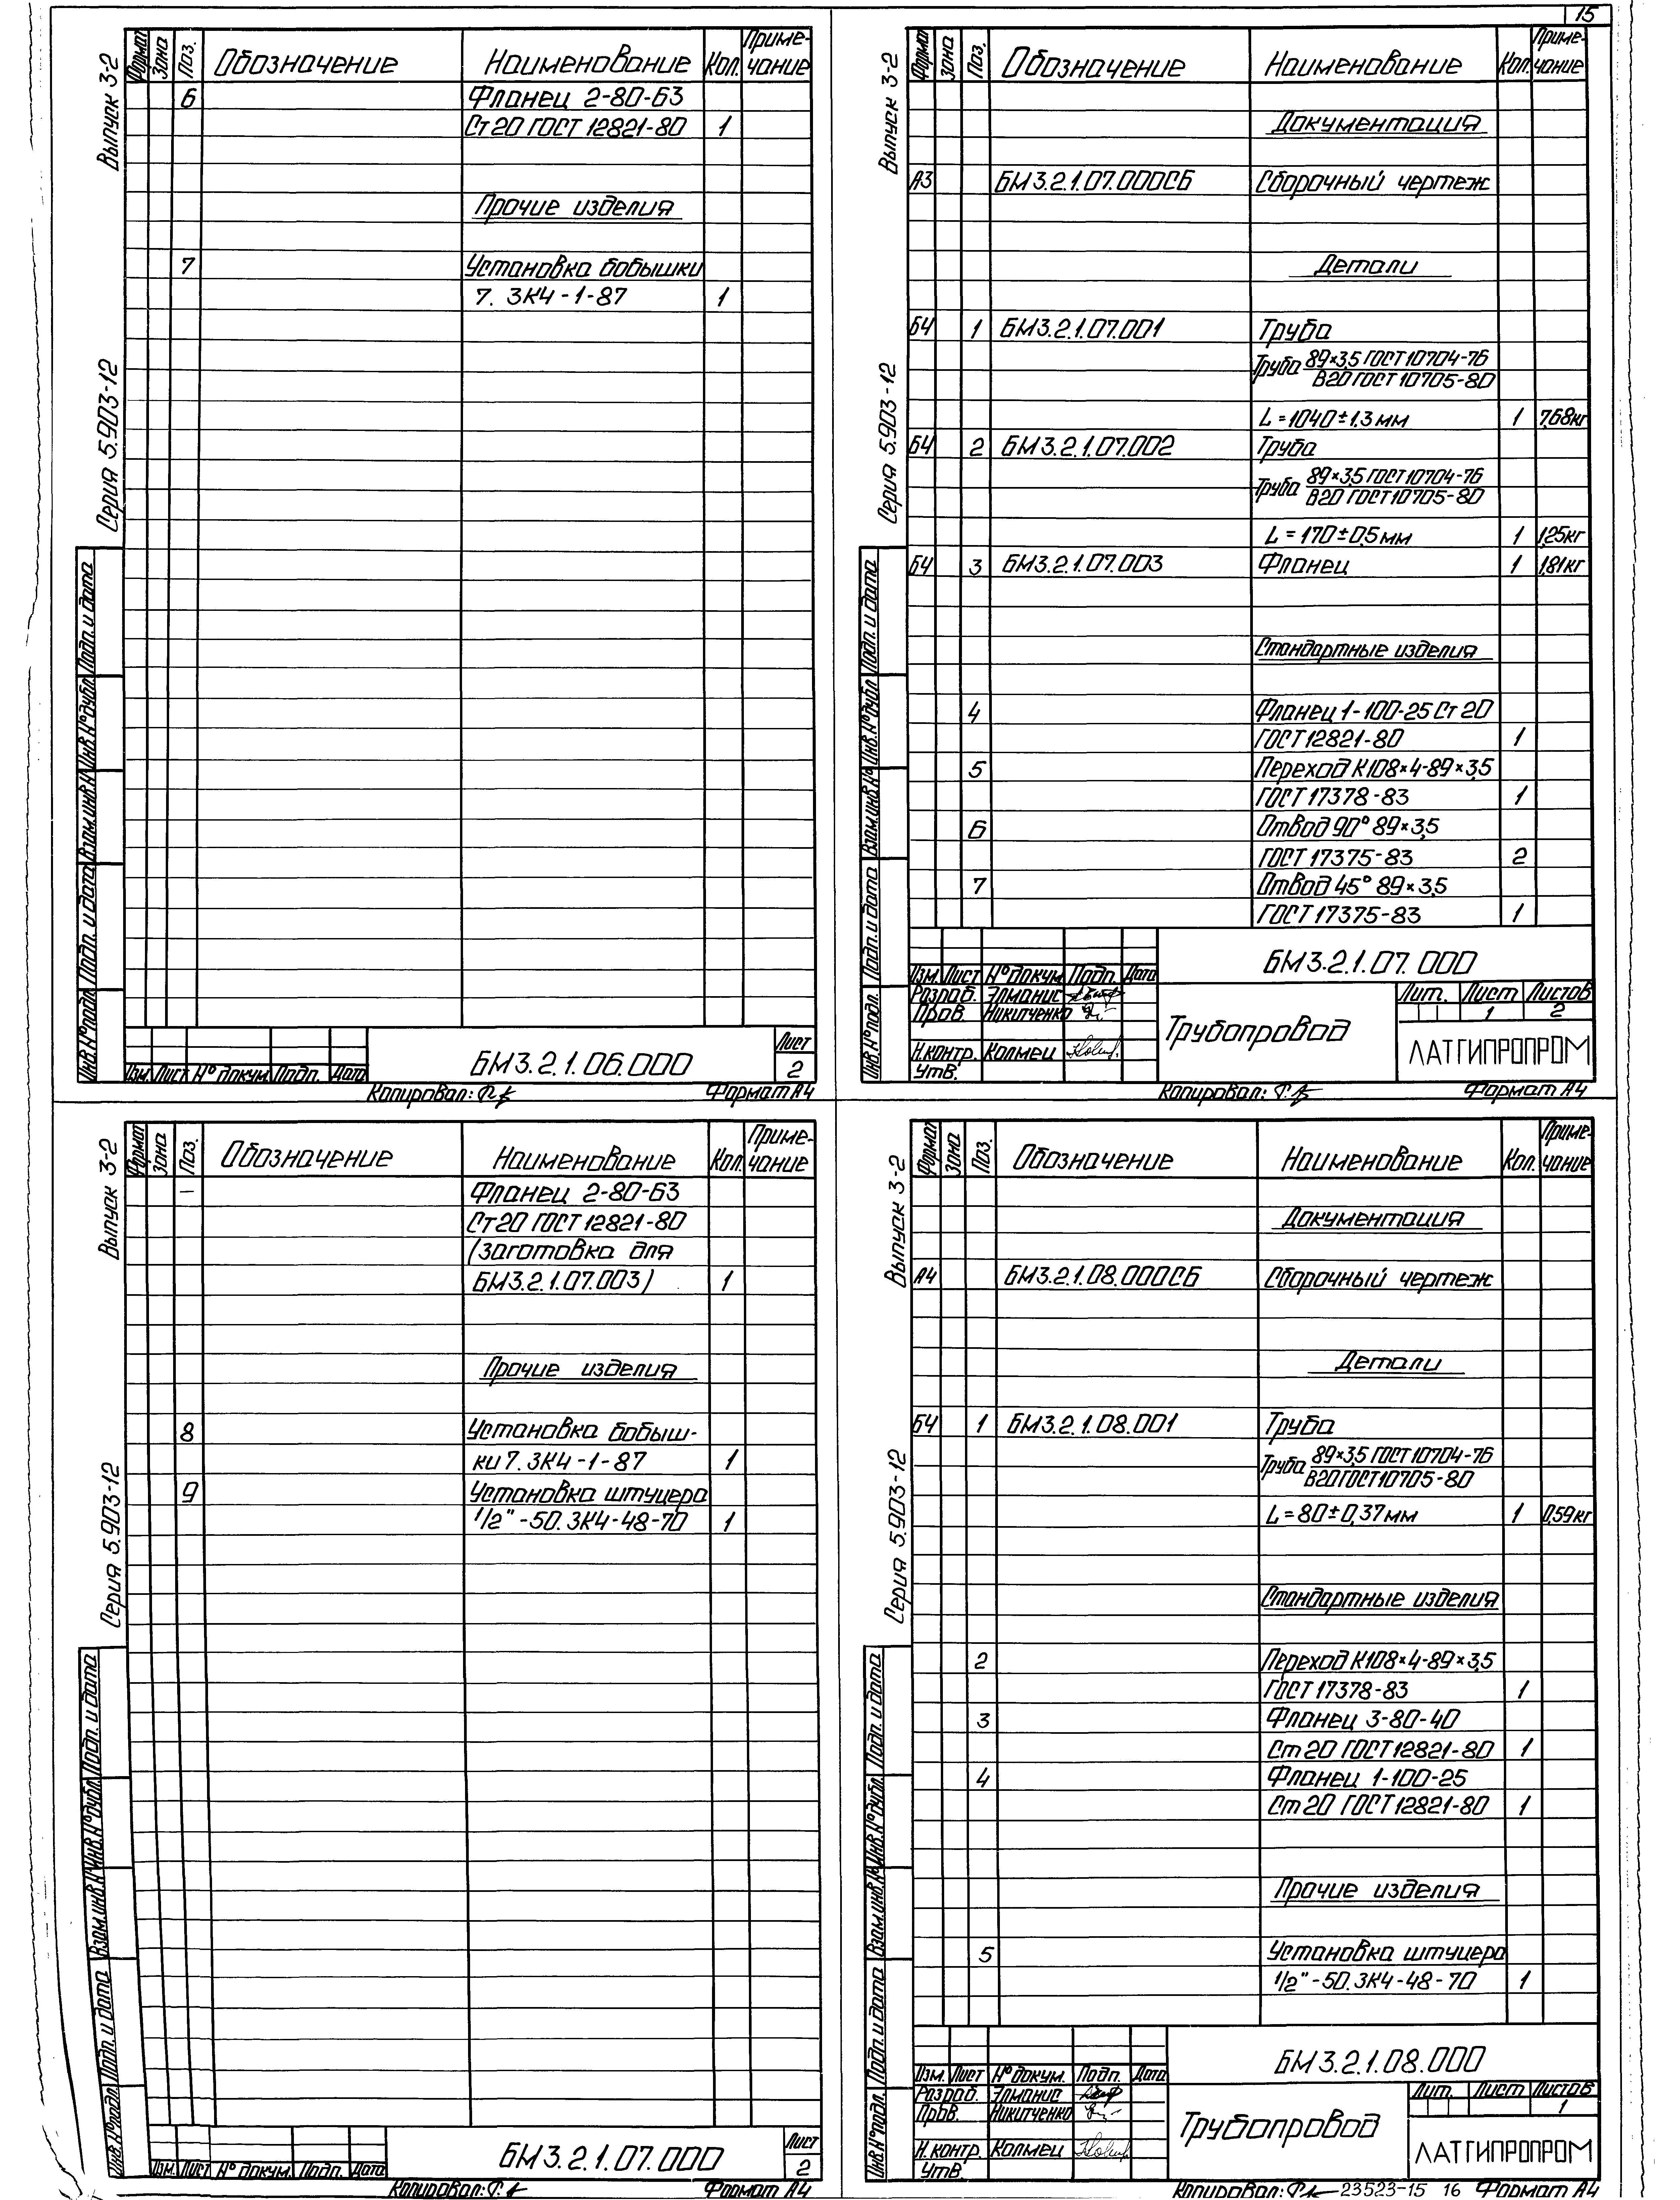 15
Выпуск 3-2
Серия 5.903-12
Формат Зона Поз. Обозначение Наименование Кол. Приме-
чание
6 Фланец 2-80-63
Ст 20 ГОСТ 12821-80 1
Прочие изделия
7 Установка бобышки
7. ЗК4-1-87 1
Подп. и дата
Инв.N°дубл.
Взам.инв.N°
Подп. и дата
Инв.N°подл.
Изм. Лист N° докум. Подп. Дата
БМ3.2.1.06.000
Лист
2
Копировал:
Формат А4
Выпуск 3-2
Серия 5.903-12
Формат Зона Поз. Обозначение Наименование Кол. Приме-
чание
Документация
А3 БМ3.2.1.07.000СБ Сборочный чертеж
Детали
БЧ 1 БМ3.2.1.07.001 Труба
Труба 89×3,5 ГОСТ 10704-76
В20 ГОСТ 10705-80
L=1040±1.3 мм 1 7,68кг
БЧ 2 БМ3.2.1.07.002 Труба
Труба 89×3,5 ГОСТ 10704-76
В20 ГОСТ 10705-80
L=170±0,5 мм 1 1,25кг
БЧ 3 БМ3.2.1.07.003 Фланец 1 1,81кг
Стандартные изделия
4 Фланец 1-100-25 Ст 20
ГОСТ 12821-80 1
5 Переход К108×4-89×3,5
ГОСТ 17378-83 1
6 Отвод 90° 89×3,5
ГОСТ 17375-83 2
7 Отвод 45° 89×3,5
ГОСТ 17375-83 1
Подп. и дата
Инв.N°дубл.
Взам.инв.N°
Подп. и дата
Инв.N°подл.
БМ3.2.1.07.000
Изм. Лист N° докум. Подп. Дата
Разраб. Элманис
Пров. Никитченко
Н.контр. Колмец
Утв.
Трубопровод
Лит. Лист Листов
1 2
ЛАТГИПРОПРОМ
Копировал:
Формат А4
Выпуск 3-2
Серия 5.903-12
Формат Зона Поз. Обозначение Наименование Кол. Приме-
чание
– Фланец 2-80-63
Ст 20 ГОСТ 12821-80
(заготовка для
БМ3.2.1.07.003) 1
Прочие изделия
8 Установка бобыш-
ки 7. ЗК4-1-87 1
9 Установка штуцера
1/2"-50. ЗК4-48-70 1
Подп. и дата
Инв.N°дубл.
Взам.инв.N°
Подп. и дата
Инв.N°подл.
Изм. Лист N° докум. Подп. Дата
БМ3.2.1.07.000
Лист
2
Копировал:
Формат А4
Выпуск 3-2
Серия 5.903-12
Формат Зона Поз. Обозначение Наименование Кол. Приме-
чание
Документация
А4 БМ3.2.1.08.000СБ Сборочный чертеж
Детали
БЧ 1 БМ3.2.1.08.001 Труба
Труба 89×3,5 ГОСТ 10704-76
В20 ГОСТ 10705-80
L=80±0,37 мм 1 0,59кг
Стандартные изделия
2 Переход К108×4-89×3,5
ГОСТ 17378-83 1
3 Фланец 3-80-40
Ст 20 ГОСТ 12821-80 1
4 Фланец 1-100-25
Ст 20 ГОСТ 12821-80 1
Прочие изделия
5 Установка штуцера
1/2"-50. ЗК4-48-70 1
Подп. и дата
Инв.N°дубл.
Взам.инв.N°
Подп. и дата
Инв.N°подл.
БМ3.2.1.08.000
Изм. Лист N° докум. Подп. Дата
Разраб. Элманис
Пров. Никитченко
Н.контр. Колмец
Утв.
Трубопровод
Лит. Лист Листов
1
ЛАТГИПРОПРОМ
Копировал: 23523-15 16 Формат А4